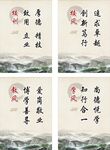 校训
厚德 精技
致用 立业
校风
追求卓越
创新笃行
教风
爱岗敬业
博学善导
学风
尚德悦学
知行合一